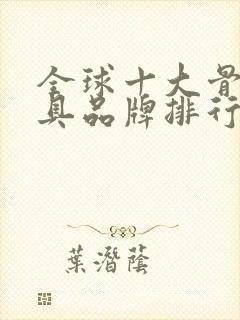 全球十大骨
具品牌排行
葉潛蔭